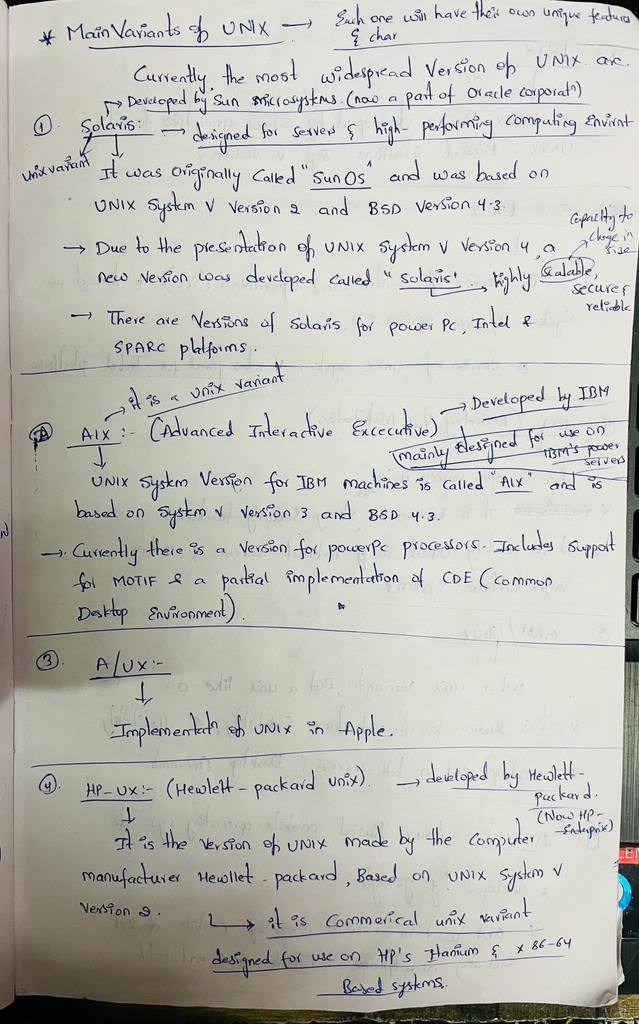 * Main Variants of UNIX → Each one will have their own unique features
& char
Currently, the most widespread Version of UNIX are.
→ Developed by Sun microsystems. (now a part of Oracle corporatn)
① Solaris: → designed for servers & high-performing Computing Envirnt
unix variant
It was originally Called "Sun Os" and was based on
UNIX System V Version 2 and BSD Version 4.3.
Capacity to
change in
size
→ Due to the presentation of UNIX System V Version 4, a
new version was developed called "Solaris". → highly scalable,
secure &
reliable
→ There are Versions of Solaris for power Pc, Intel &
SPARC platforms.
→ it is a unix variant
→ Developed by IBM
② AIX :- (Advanced Interactive Excecutive)
(mainly designed for use on
IBM's power
servers
UNIX System Version for IBM machines is called "AIX" and is
based on System V Version 3 and BSD 4.3.
→ Currently there is a Version for powerPc processors. Includes Support
for MOTIF & a partial implementation of CDE (Common
Desktop Environment).
③. A/UX:-
Implementatn of UNIX in Apple.
④. HP-UX:- (Hewlett-packard Unix). → developed by Hewlett-
packard.
(Now HP-
Enterprise)
It is the Version of UNIX made by the Computer
manufacturer Hewllet-packard, Based on UNIX System V
Version 2.
→ it is Commerical unix variant
designed for use on HP's Itanium & x 86-64
Based systems.